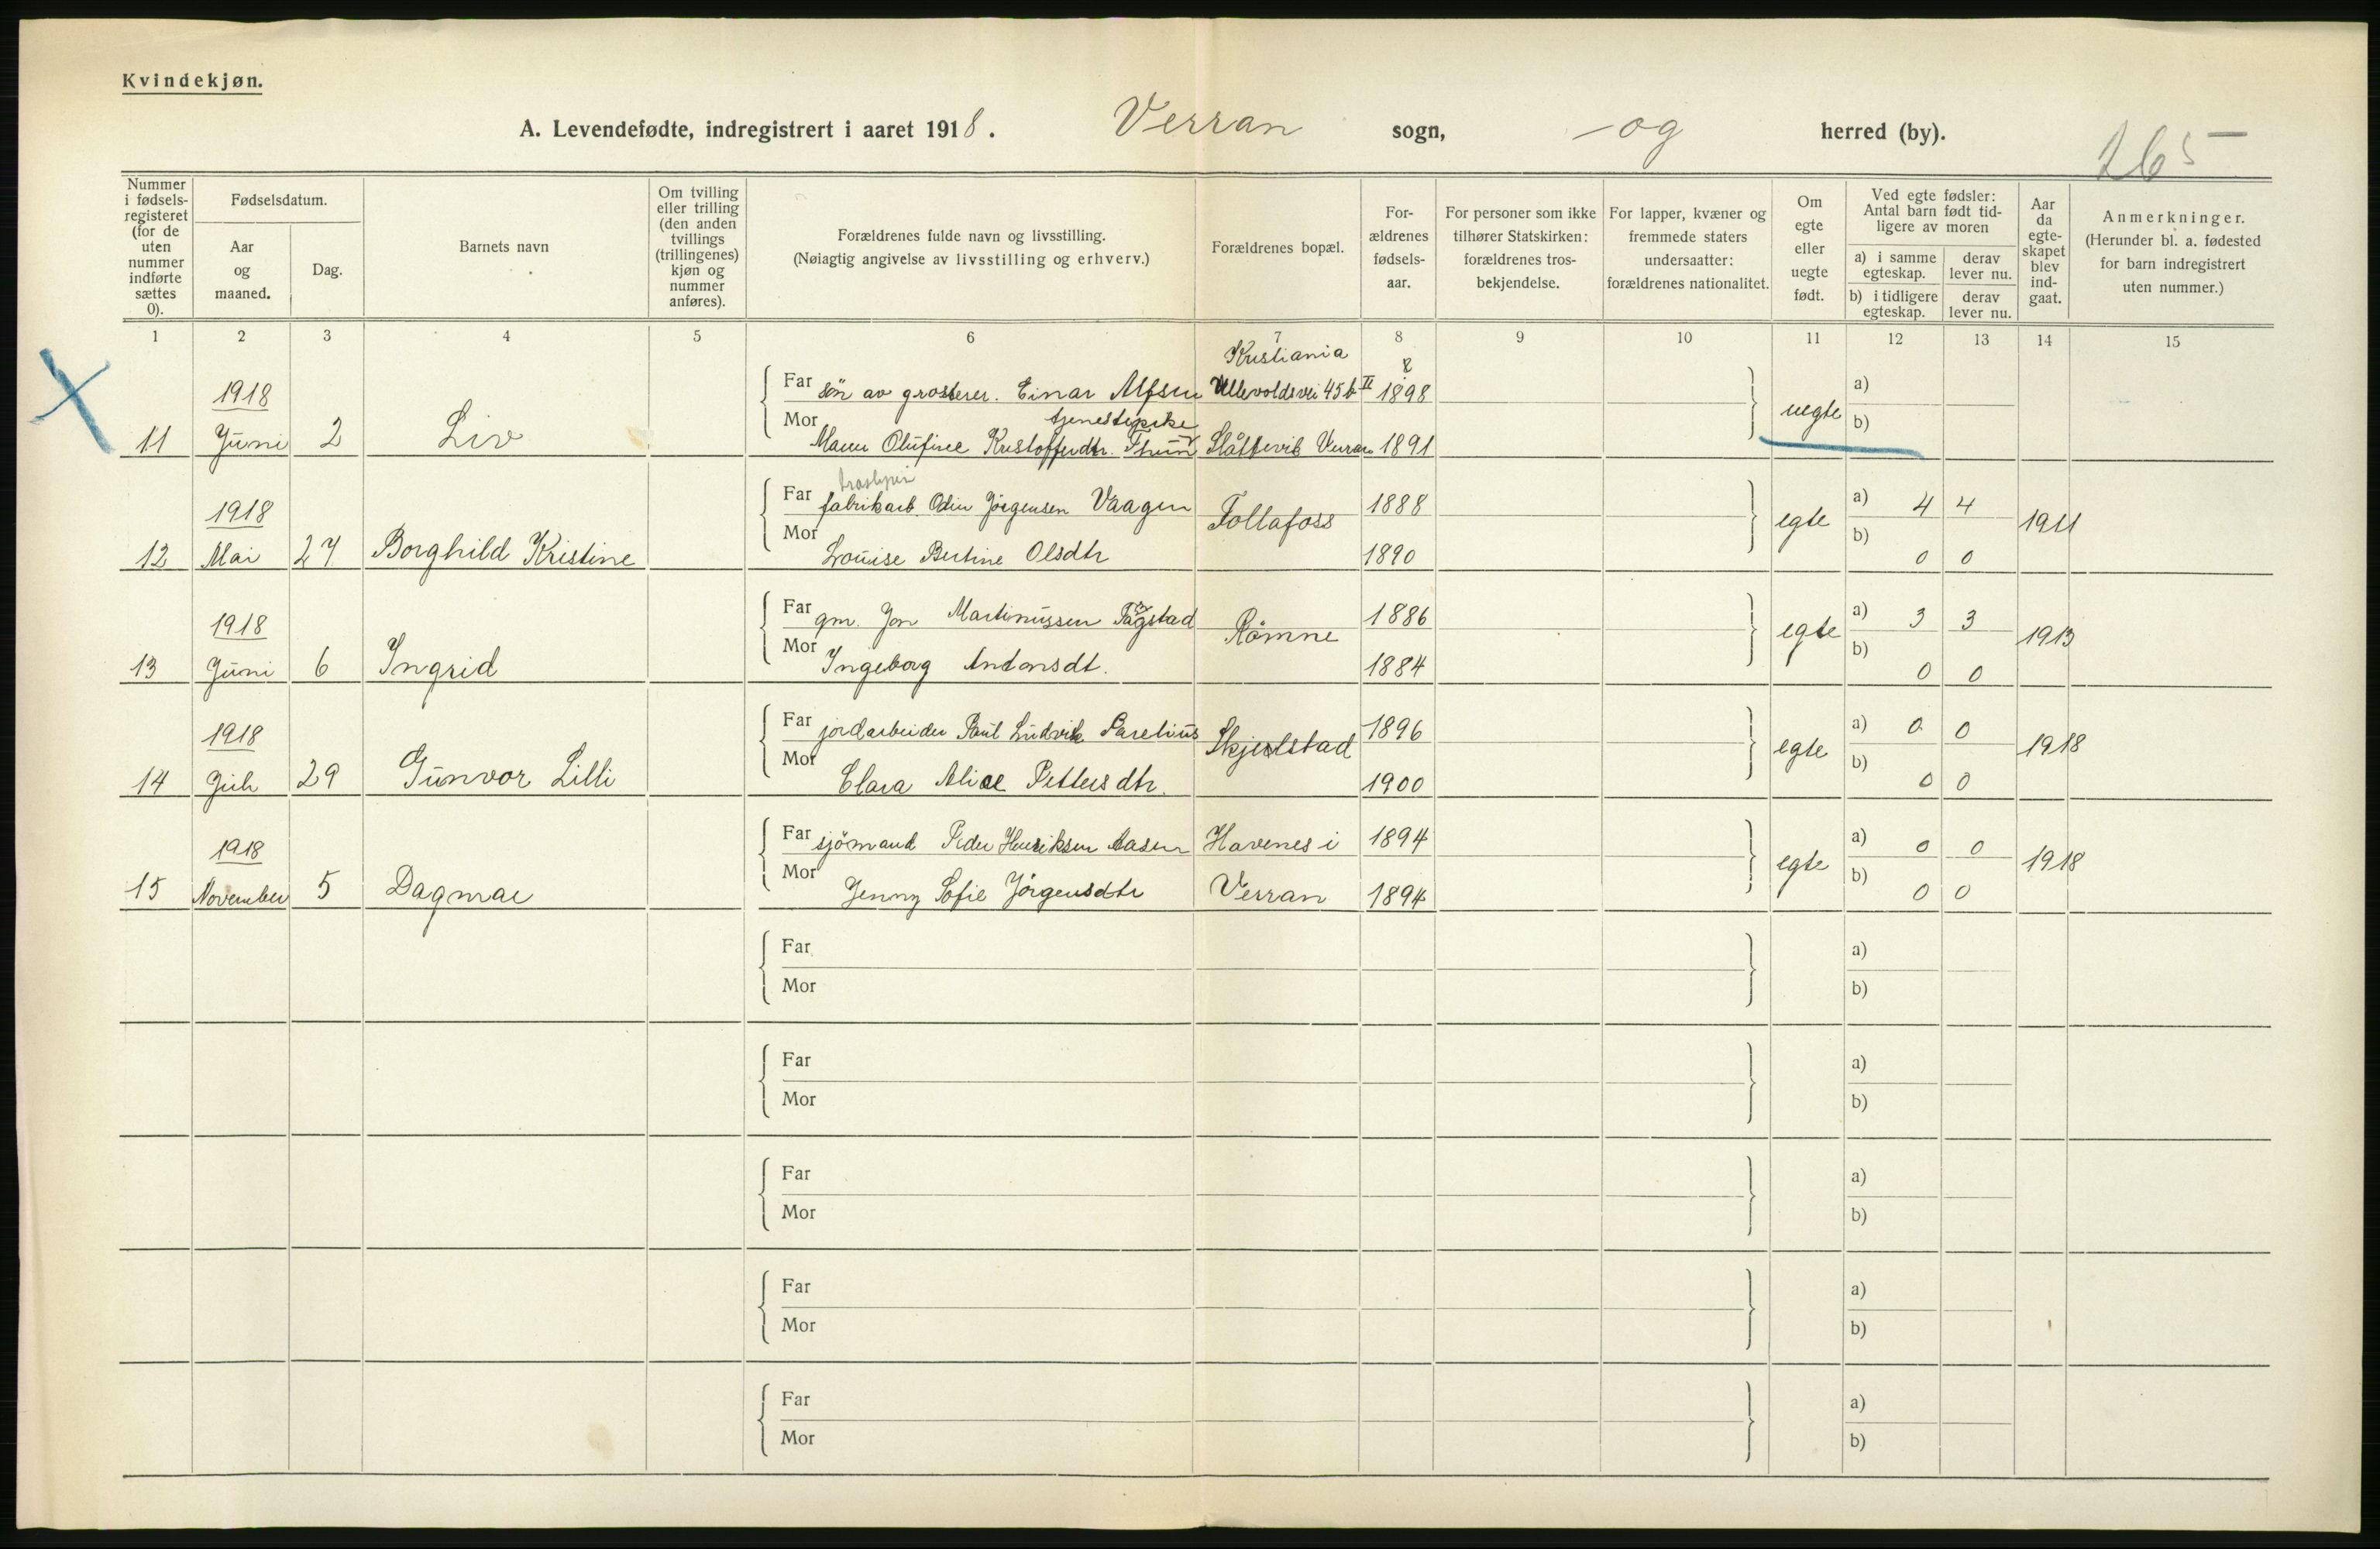 Kvindekjøn.
A. Levendefødte, indregistrert i aaret 1918. Verran sogn, - og herred (by).
265
Nummer i fødsels-registeret (for de uten nummer indførte sættes 0).
Fødselsdatum.
Aar og maaned.
Dag.
Barnets navn
Om tvilling eller trilling (den anden tvillings (trillingenes) kjøn og nummer anføres).
Forældrenes fulde navn og livsstilling.
(Nøiagtig angivelse av livsstilling og erhverv.)
Forældrenes bopæl.
For-ældrenes fødsels-aar.
For personer som ikke tilhører Statskirken: forældrenes tros-bekjendelse.
For lapper, kvæner og fremmede staters undersaatter: forældrenes nationalitet.
Om egte eller uegte født.
Ved egte fødsler: Antal barn født tid-ligere av moren
a) i samme egteskap.
derav lever nu.
b) i tidligere egteskap.
derav lever nu.
Aar da egte-skapet blev ind-gaat.
Anmerkninger.
(Herunder bl. a. fødested for barn indregistrert uten nummer.)
1 2 3 4 5 6 7 8 9 10 11 12 13 14 15
Kristiania
1918 Far søn av grosserer. Einar Alfsen Ullevoldsvei 45b II 1898 a)
tjenestepike uegte b)
11 Juni 2 Liv Mor Olufine Kristoffersdtr. Thun Slåttevik Verran 1891
1918 Far fabrikarb. Odin Jörgensen Vaagen Follafoss 1888 egte a) 4 4 1911
12 Mai 27 Borghild Kristine Mor Louise Bertine Olsdtr 1890 b) 0 0
1918 Far gm. Jon Martinussen Fagstad Råmne 1886 egte a) 3 3 1913
13 Juni 6 Ingrid Mor Ingeborg Antonsdt. 1884 b) 0 0
1918 Far jordarbeider Paul Ludvik Parelius Skjelstad 1896 egte a) 0 0 1918
14 Juli 29 Gunvor Lilli Mor Clara Alice Pettersdtr. 1900 b) 0 0
1918 Far sjömand Peder Henriksen Aasen Havenes i 1894 egte a) 0 0 1918
15 November 5 Dagmar Mor Jenny Sofie Jörgensdtr Verran 1894 b) 0 0
Far a)
Mor b)
Far a)
Mor b)
Far a)
Mor b)
Far a)
Mor b)
Far a)
Mor b)